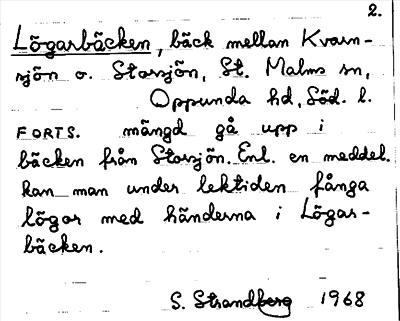 2.
Lögarbäcken, bäck mellan Kvarn-
sjön o. Storsjön, St. Malms sn,
Oppunda hd, Söd. l.
FORTS. mängd gå upp i
bäcken från Storsjön. Enl. en meddel.
kan man under lektiden fånga
lögar med händerna i Lögar-
bäcken.
S. Strandberg 1968